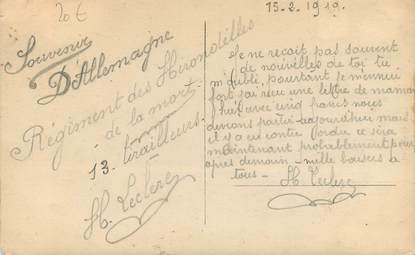 20 €
Souvenir
D'Allemagne
Régiment des Hirondelles
de la mort
13. tirailleurs.
H. Leclerc
15-2. 1919.
Je ne reçoit pas souvent
de nouvelles de toi tu
m'oubli pourtant je m'ennui
fort j'ai reçu une lettre de maman
hier avec cinq nous
devions partir aujourd'hui mais
il y a eu contre ordre ce sera
maintenant probablement pour
après demain - mille baisers à
tous - H. Leclerc